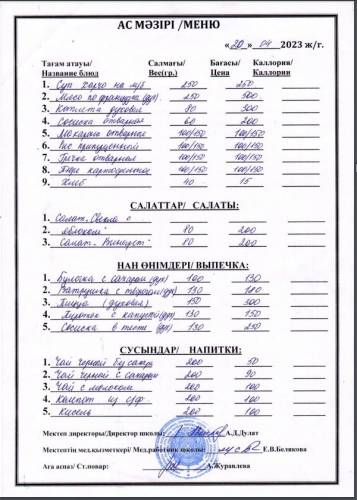 АС МӘЗІРІ /МЕНЮ
«20» 04 2023 ж/г.
Тағам атауы/ Салмағы/ Бағасы/ Каллория/
Название блюд Вес(гр.) Цена Каллории
1. Суп харчо на м/б 250 250
2. Мясо по французски (дух) 250 500
3. Котлета духовая 80 300
4. Сосиска отварная 60 200
5. Макароны отварные 100/150 100/150
6. Рис припущенный 100/150 100/150
7. Гречка отварная 100/150 100/150
8. Пюре картофельное 100/150 100/150
9. Хлеб 40 15
САЛАТТАР/ САЛАТЫ:
1. Салат. Свекла с
2. яблоком 80 200
3. Салат. Винегрет 80 200
НАН ӨНІМДЕРІ/ ВЫПЕЧКА:
1. Булочка с сахаром (дух) 100 130
2. Ватрушка с творогом (дух) 130 180
3. Пицца (духовая) 150 300
4. Пирожок с капустой (дух) 130 150
5. Сосиска в тесте (дух) 130 250
СУСЫНДАР/ НАПИТКИ:
1. Чай черный без сахара 200 50
2. Чай черный с сахаром 200 90
3. Чай с молоком 200 100
4. Компот из с/ф 200 100
5. Кисель 200 100
Мектеп директоры/Директор школы: А.Д.Дулат
Мектептің мед.қызметкері/ Мед.работник школы: Е.В.Белякова
Аға аспаз/ Ст.повар: А.Журавлева